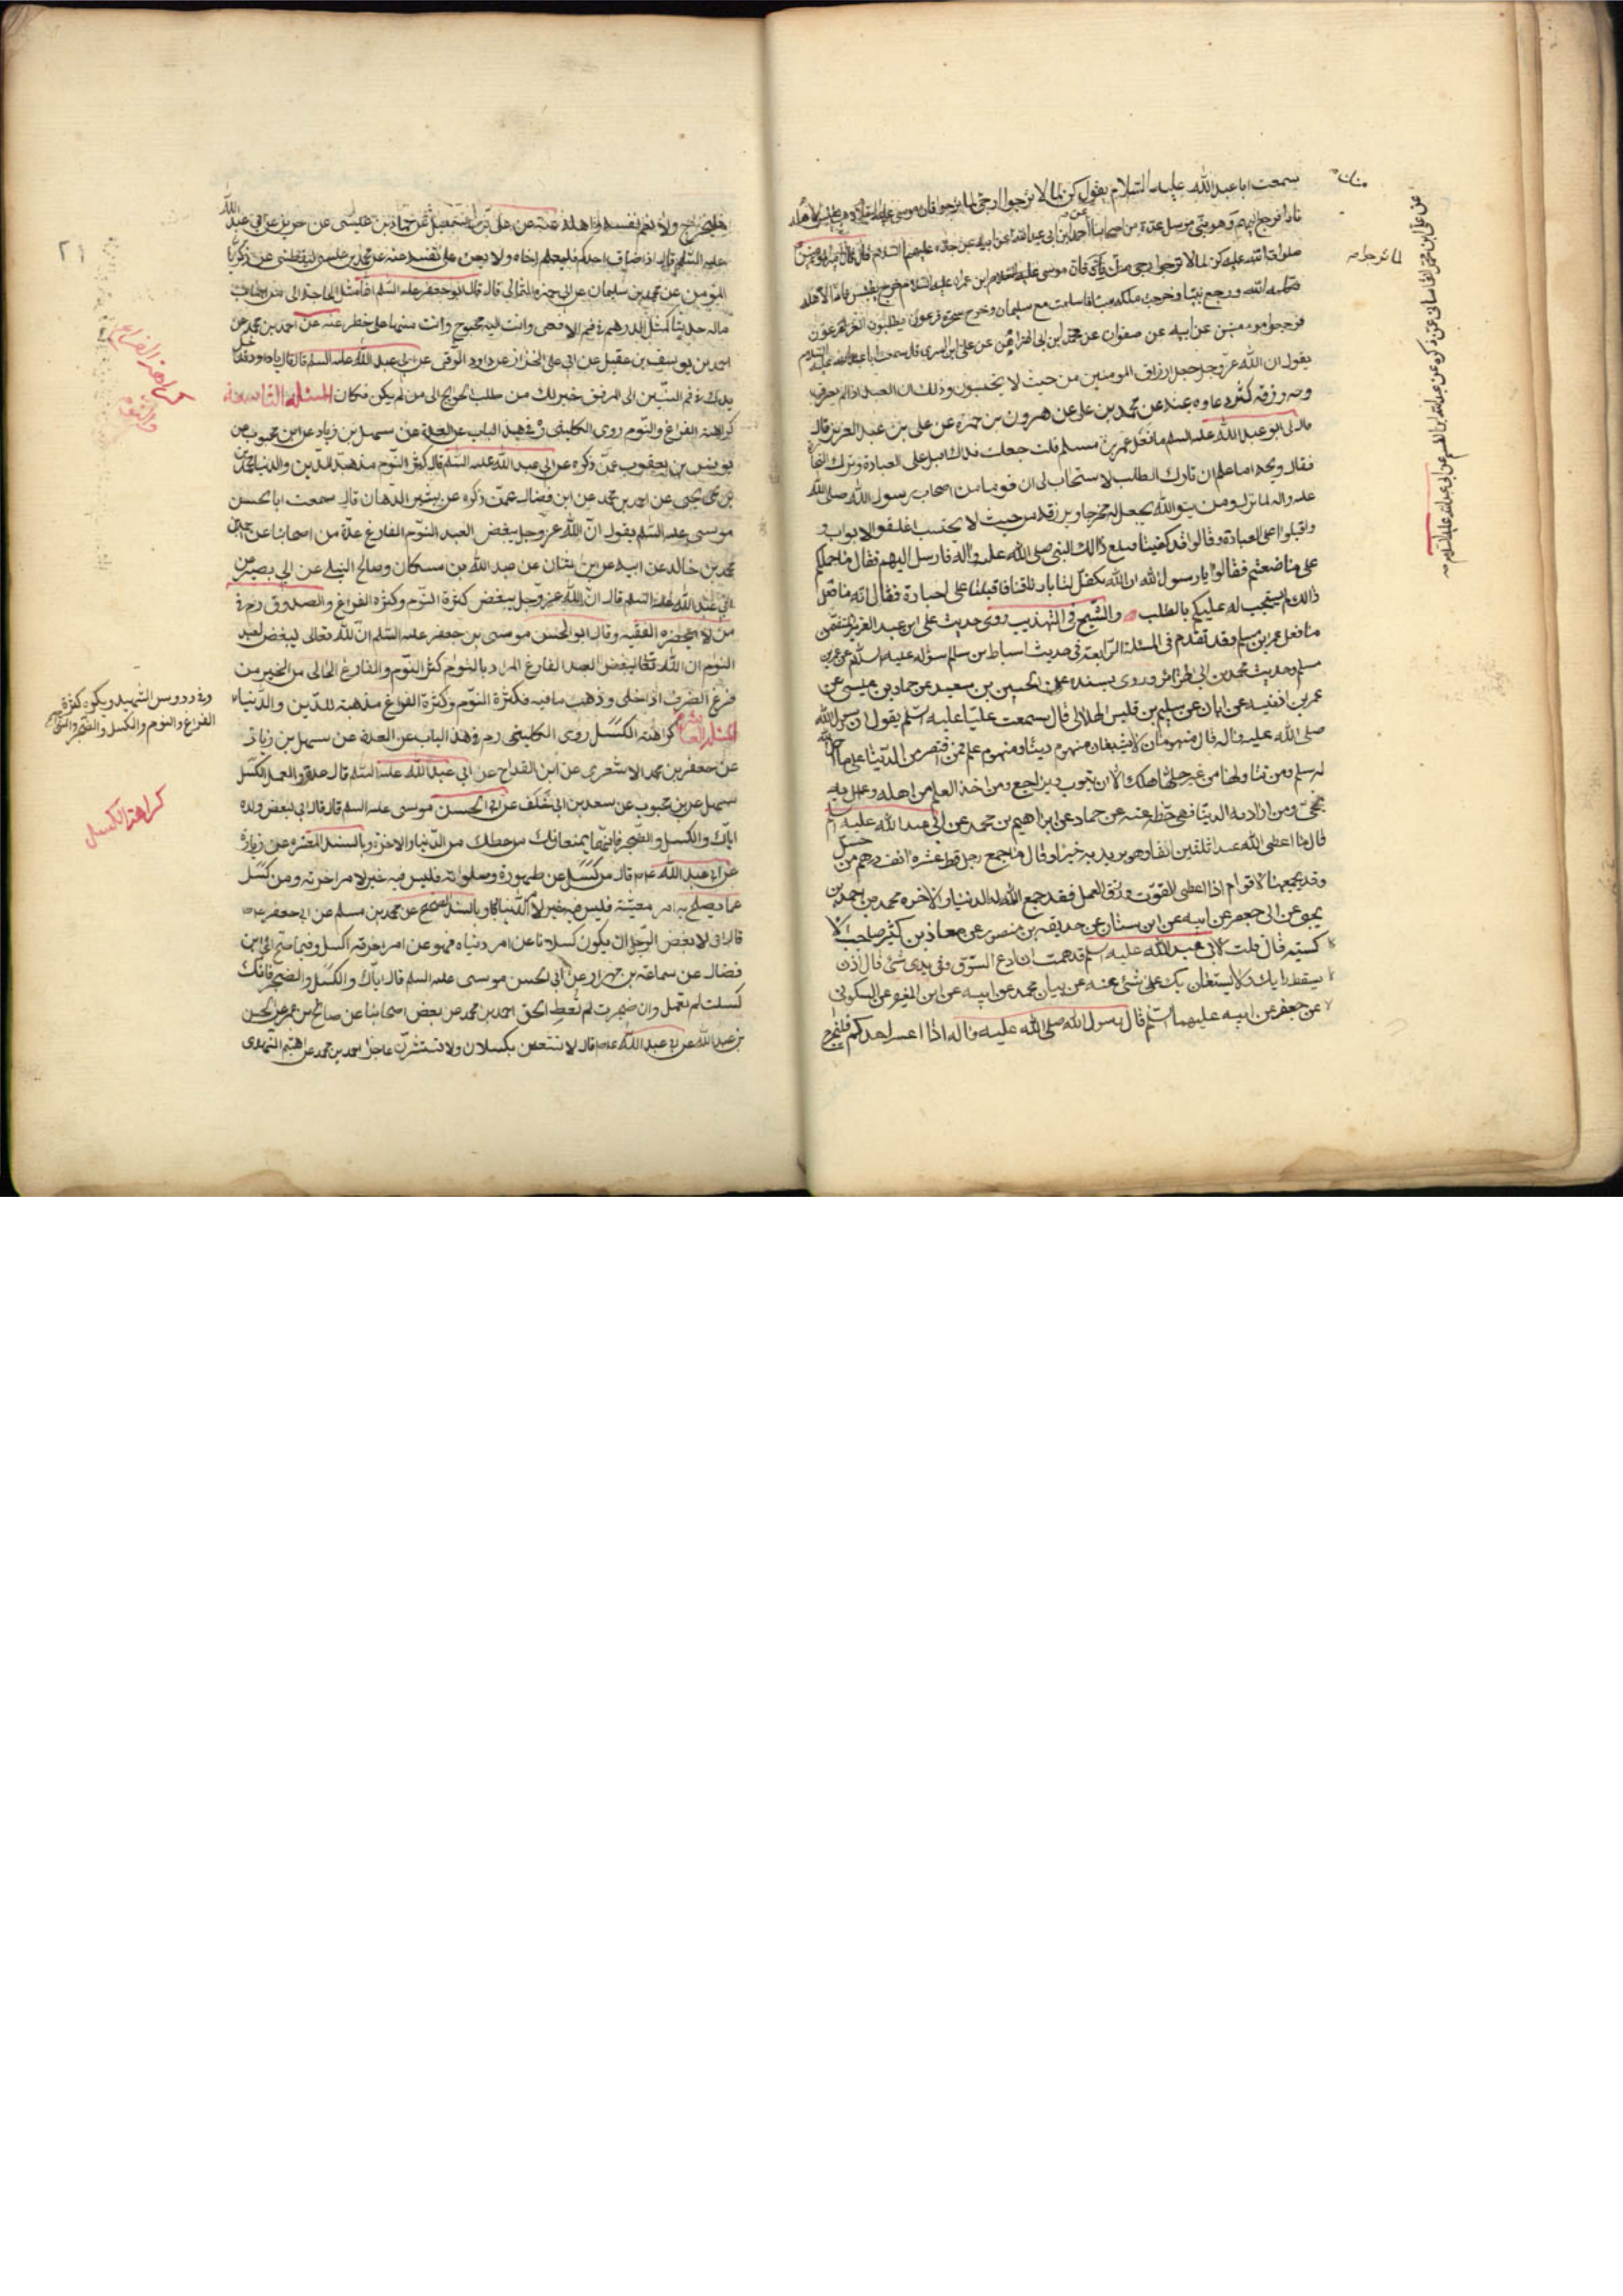 سمعت ابا عبد الله عليه السلام يقول كن لما لا ترجوا ارجى لما ترجوا فان موسى عليه السلام ذهب
نارا فرجع اليهم وهو نبي مرسل عدة من اصحابنا احمد بن ابي عبد الله عن ابيه عن جده عليهم السلام قال قال
صلوات الله عليه كن لما لا ترجوا ارجى منك فان موسى عليه السلام ابن عمران عليه السلام خرج يقتبس نارا لاهله
فكلمه الله ورجع نبيا وخرجت ملكة سبا فاسلمت مع سليمان وخرج سحرة فرعون يطلبون العز لفرعون
فرجعوا مؤمنين عن ابيه عن صفوان عن محمد ابن ابي الهزاهز عن علي ابن السري قال سمعت ابا عبد الله عليه السلام
يقول ان الله عز وجل جعل ارزاق المومنين من حيث لا يحتسبون وذلك ان العبد اذا لم يعرف
وجه رزقه كثر دعاوه عنه عن محمد بن علي عن هرون بن حمزة عن علي بن عبد العزيز قال
قال لي ابو عبد الله عليه السلم ما فعل عمر بن مسلم قلت جعلت فداك اقبل على العبادة وترك التجارة
فقال ويحه اما علم ان تارك الطلب لا يستجاب له ان قوما من اصحاب رسول الله صلى الله
عليه واله لما نزل ومن يتق الله يجعل له مخرجا ويرزقه من حيث لا يحتسب اغلقوا الابواب و
واقبلوا على العبادة وقالوا قد كفينا فبلغ ذالك النبي صلى الله عليه واله فارسل اليهم فقال ما حملكم
على ما صنعتم فقالوا يا رسول الله ان الله تكفل لنا بارزاقنا فاقبلنا على العبادة فقال انه من فعل
ذالك لم يستجب له عليكم بالطلب والشيخ في التهذيب روى حديث علي ابن عبد العزيز المتضمن
ما فعل عمر ابن مسلم وقد تقدم في المسئلة الرابعة في حديث اسباط بن سالم سؤاله عليه السلام عن عمر بن
مسلم وحديث محمد بن ابي الهزاهز وروى بسنده عن الحسين بن سعيد عن حماد بن عيسى عن
عمر بن اذينه عن ابان عن سليم بن قليس الهلالي قال سمعت عليا عليه السلم يقول ان رسول الله
صلى الله عليه واله قال منهومان لا يشبعان منهوم دينا ومنهوم علم فمن اقتصر من الدنيا على ما احل الله
له سلم ومن تناولها من غير حلها هلك الا ان يتوب ويراجع ومن اخذ العلم من اهله وعمل به
نجى ومن اراد به الدنيا فهي حظه عنه عن حماد عن ابراهيم بن محمد عن ابي عبد الله عليه السلم
قال ما اعطى الله عبدا ثلثين الفا وهو يريد به خيرا وقال ما جمع رجل قط عشره الف درهم من حل
وقد يجمعها لاقوام اذا اعطي القوت ورزق العمل فقد جمع الله له الدنيا والاخره محمد بن احمد بن
يحيى عن ابي جعفر عن ابيه عن ابن سنان عن حذيفه بن منصور عن معاذ بن كثير صاحب الا
كسيه قال قلت لابي عبد الله عليه السلم قد هممت ان ادع السوق وفي يدي شئ قال اذن
يسقط رايك ولا يستعان بك على شئ عنه عن بنان محمد عن ابيه عن ابن المغيره عن السكوني
عن جعفر عن ابيه عليهما السلم قال رسول الله صلى الله عليه واله اذا اعسر احدكم فليخرج
لما ترجوا
عن علي بن محمد القاساني عمن ذكره عن عبد الله ابن القسم عن ابي عبد الله عليه السلام
٢١
ولا يغم نفسه واهله عنه عن علي بن اسمعيل عن حماد بن عيسى عن حريز عن ابي عبد الله
عليه السلم قال اذا ضاق احدكم فليعلم اخاه ولا يعن على نفسه عنه عن محمد بن عيسى اليقطيني عن زكريا
المؤمن عن محمد بن سليمان عن ابي حمزه الثمالي قال قال ابو جعفر عليه السلم انما مثل الحاجة الى من اصاب
ماله حديثا كمثل الدرهم في فم الافعى وانت اليه محوج وانت منها على خطر عنه عن احمد بن محمد عن
احمد بن يوسف بن عقيل عن ابي علي الخزاز عن داود الرقي عن ابي عبد الله عليه السلم قال قال يا داود تدخل
يدك في فم التنين الى المرفق خير لك من طلب الحوائج الى من لم يكن فكان المسئلة التاسعة
كراهة الفراغ والنوم روى الكليني في هذا الباب عن العدة عن سهل بن زياد عن ابن محبوب عن
يونس بن يعقوب عمن ذكره عن ابي عبد الله عليه السلم قال كثرة النوم مذهبة للدين والدنيا محمد
بن يحيى عن احمد بن محمد عن ابن فضال عمن ذكره عن بشير الدهان قال سمعت ابا الحسن
موسى عليه السلم يقول ان الله عز وجل يبغض العبد النوم الفارغ عدة من اصحابنا عن احمد بن
محمد بن خالد عن ابيه عن ابن سنان عن عبد الله بن مسكان وصالح النيلي عن ابي بصير عن
ابي عبد الله عليه السلم قال ان الله عز وجل يبغض كثرة النوم وكثرة الفراغ والصدوق ره في
من لا يحضره الفقيه وقال ابو الحسن موسى بن جعفر عليه السلم ان الله تعالى ليبغض العبد
النوم ان الله تعالى ليبغض العبد الفارغ المراد بالنوم كثير النوم والفارغ الخالي من الخير من
فرغ الظرف اذا خلى وذهب ما فيه فكثرة النوم وكثرة الفراغ مذهبة للدين والدنيا
المسئلة العاشرة كراهة الكسل روى الكليني ره في هذا الباب عن العدة عن سهل بن زياد
عن جعفر بن محمد الاشعري عن ابن القداح عن ابي عبد الله عليه السلم قال عدو العمل الكسل
سهل عن بن محبوب عن سعد بن ابي خلف عن ابي الحسن موسى عليه السلم قال قال ابي لبعض ولده
اياك والكسل والضجر فانهما يمنعانك من حظك من الدنيا والاخرة وبالسند عن زرارة
عن ابي عبد الله ع قال من كسل عن طهوره وصلواته فليس فيه خير لامر اخرته ومن كسل
عما يصلح به امر معيشته فليس فيه خير لامر الدنيا وبالسند عن محمد بن مسلم عن ابي جعفر ع
قال اني لابغض الرجل ان يكون كسلانا عن امر دنياه فهو عن امر اخرته اكسل
فضال عن سماعة بن مهران عن ابي الحسن موسى عليه السلم قال اياك والكسل والضجر فانك
كسلت لم تعمل وان ضجرت لم تعط الحق احمد بن محمد عن بعض اصحابنا عن صالح بن عمر عن الحسن
بن عبد الله عن ابي عبد الله ع قال لا تستعن بكسلان ولا تستشرن عاجزا احمد بن محمد عن الهيثم النهدي
دروس الشهيد ويكره كثرة
الفراغ والنوم والكسل والضجر
كراهة الكسل